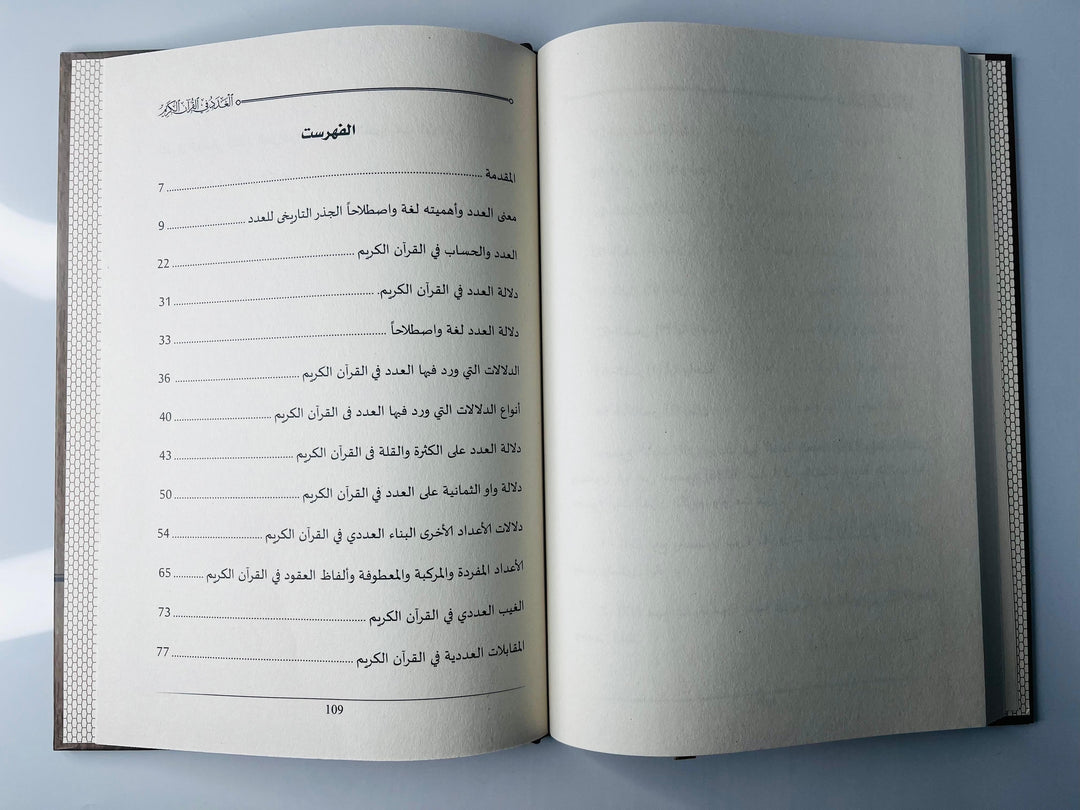 العدد في القرآن الكريم
الفهرست
المقدمة ........ 7
معنى العدد وأهميته لغة واصطلاحاً الجذر التاريخى للعدد ........ 9
العدد والحساب في القرآن الكريم ........ 22
دلالة العدد في القرآن الكريم. ........ 31
دلالة العدد لغة واصطلاحاً ........ 33
الدلالات التي ورد فيها العدد في القرآن الكريم ........ 36
أنواع الدلالات التي ورد فيها العدد فى القرآن الكريم ........ 40
دلالة العدد على الكثرة والقلة فى القرآن الكريم ........ 43
دلالة واو الثمانية على العدد في القرآن الكريم ........ 50
دلالات الأعداد الأخرى البناء العددي في القرآن الكريم ........ 54
الأعداد المفردة والمركبة والمعطوفة وألفاظ العقود في القرآن الكريم ........ 65
الغيب العددي في القرآن الكريم ........ 73
المقابلات العددية في القرآن الكريم ........ 77
109